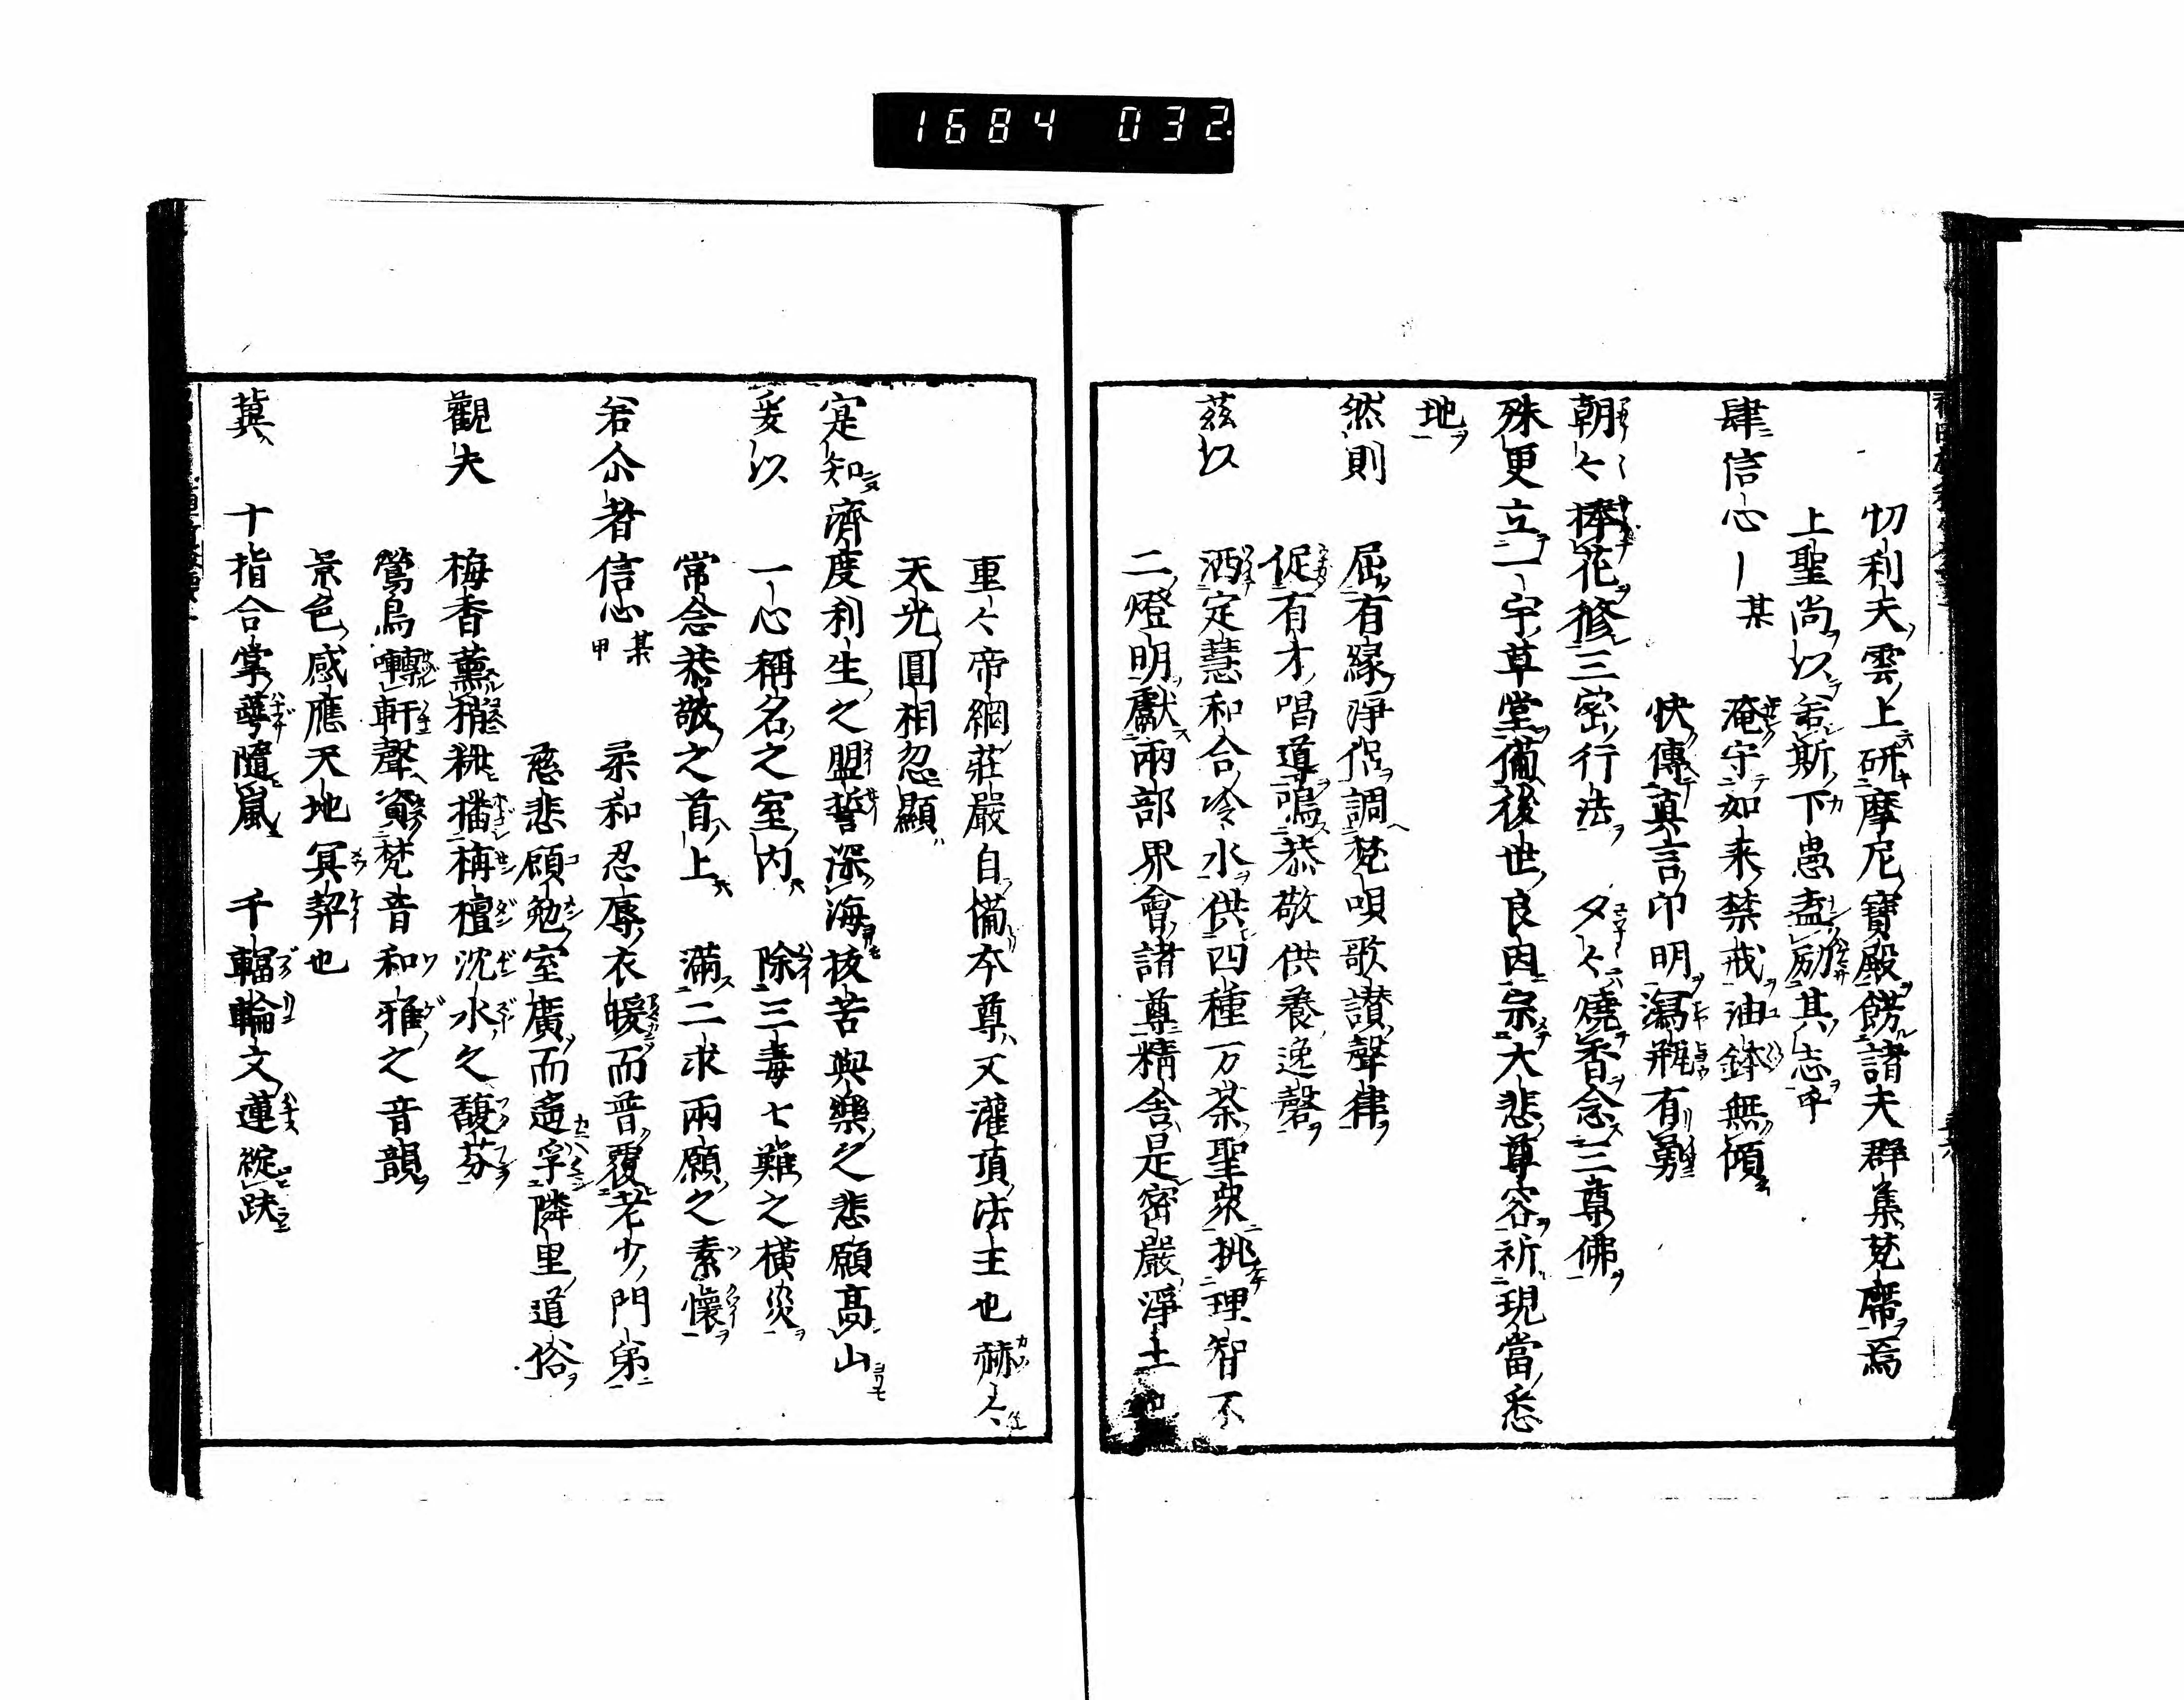 1684 032
忉利天雲上研摩尼寶殿餝諸天群集梵席焉
上聖尚以若斯下愚盍励其志乎
肆信心某 淹守如来禁戒油鉢無傾
快傳真言印明瀉瓶有勇
朝々捧花修三密行法 夕々燒香念三尊佛
殊更立一宇草堂備後世良因宗大悲尊容祈現當悉
地
然則 屈有緣淨侶調梵唄歌讃聲律
促有才唱導鳴恭敬供養逸磬
茲以 洒定慧和合冷水供四種一万茶聖衆挑理智不
二燈明獻兩部界會諸尊精舍是密嚴淨土也
重々帝網莊嚴自備本尊又灌頂法主也赫々
天光圓相忽顯
定知濟度利生之盟誓深海拔苦與樂之悲願高山
爰以 一心稱名之室内 除三毒七難之橫災
常念恭敬之首上 滿二求兩願之素懷
若尒者信心某甲 柔和忍辱衣暖而普覆老少門弟
慈悲願勉室廣而遙孚隣里道俗
觀夫 梅香薰籬粧播栴檀沈水之馥芬
鶯鳥囀軒聲資梵音和雅之音韻
景色感應天地冥契也
冀 十指合掌萼隨嵐 千輻輪文蓮綻趺